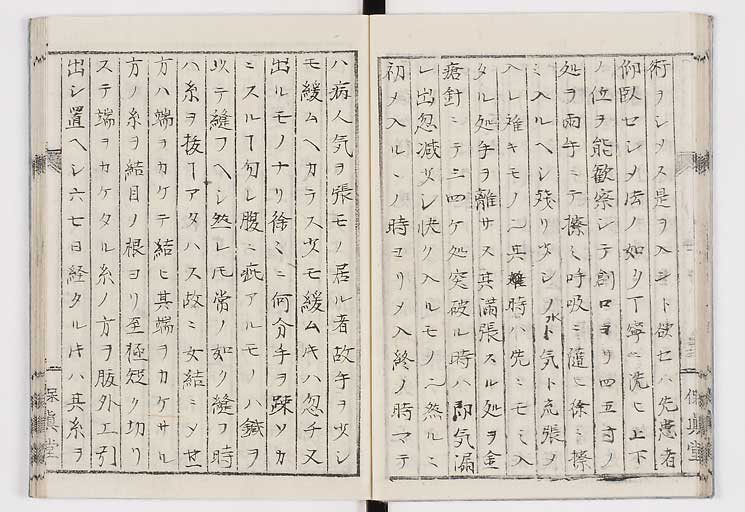 術ヲシメス是ヲ入ント欲セハ先患者
仰臥セシメ法ノ如ク丁寧ニ洗ヒ上下
ノ位ヲ能歓察シテ創口ヨリ四五寸ノ
処ヲ両手ニテ擦ミ呼吸ニ随ヒ徐ミ擦
ミ入ルヘシ残リ少シノ水ト気ト充張メ
入レ難キモノハ其難時ハ先ニモミ入
タル処手ヲ離サス其満張スル処ヲ金
瘡針ニテ三四ケ処突破ル時ハ即気漏
レ出忽减少シ快ク入ルモノ也然ルニ
初メ入ルヽノ時ヨリメ入終ノ時マテ
ハ病人気ヲ張モノ居ル者故手ヲ少シ
モ緩ムヘカラス少モ緩ムキハ忽チ又
出ルモノナリ徐ミニ何分手ヲ踈ソカ
ニスルヿ勿レ腹ニ疵アルモノハ鍼ヲ
以テ縫フヘシ然レ𪜈常ノ如ク縫フ時
ハ糸ヲ抜ヿアタハス故ニ女結ニメ世
方ハ端ヲカケテ結ヒ其端ヲカケサル
方ノ糸ヲ結目ノ根ヨリ至極短ク切リ
ステ端ヲカケタル糸ノ方ヲ腹外エ引
出シ置ヘシ六七日経タルキハ其糸ヲ
保眞堂
保眞堂